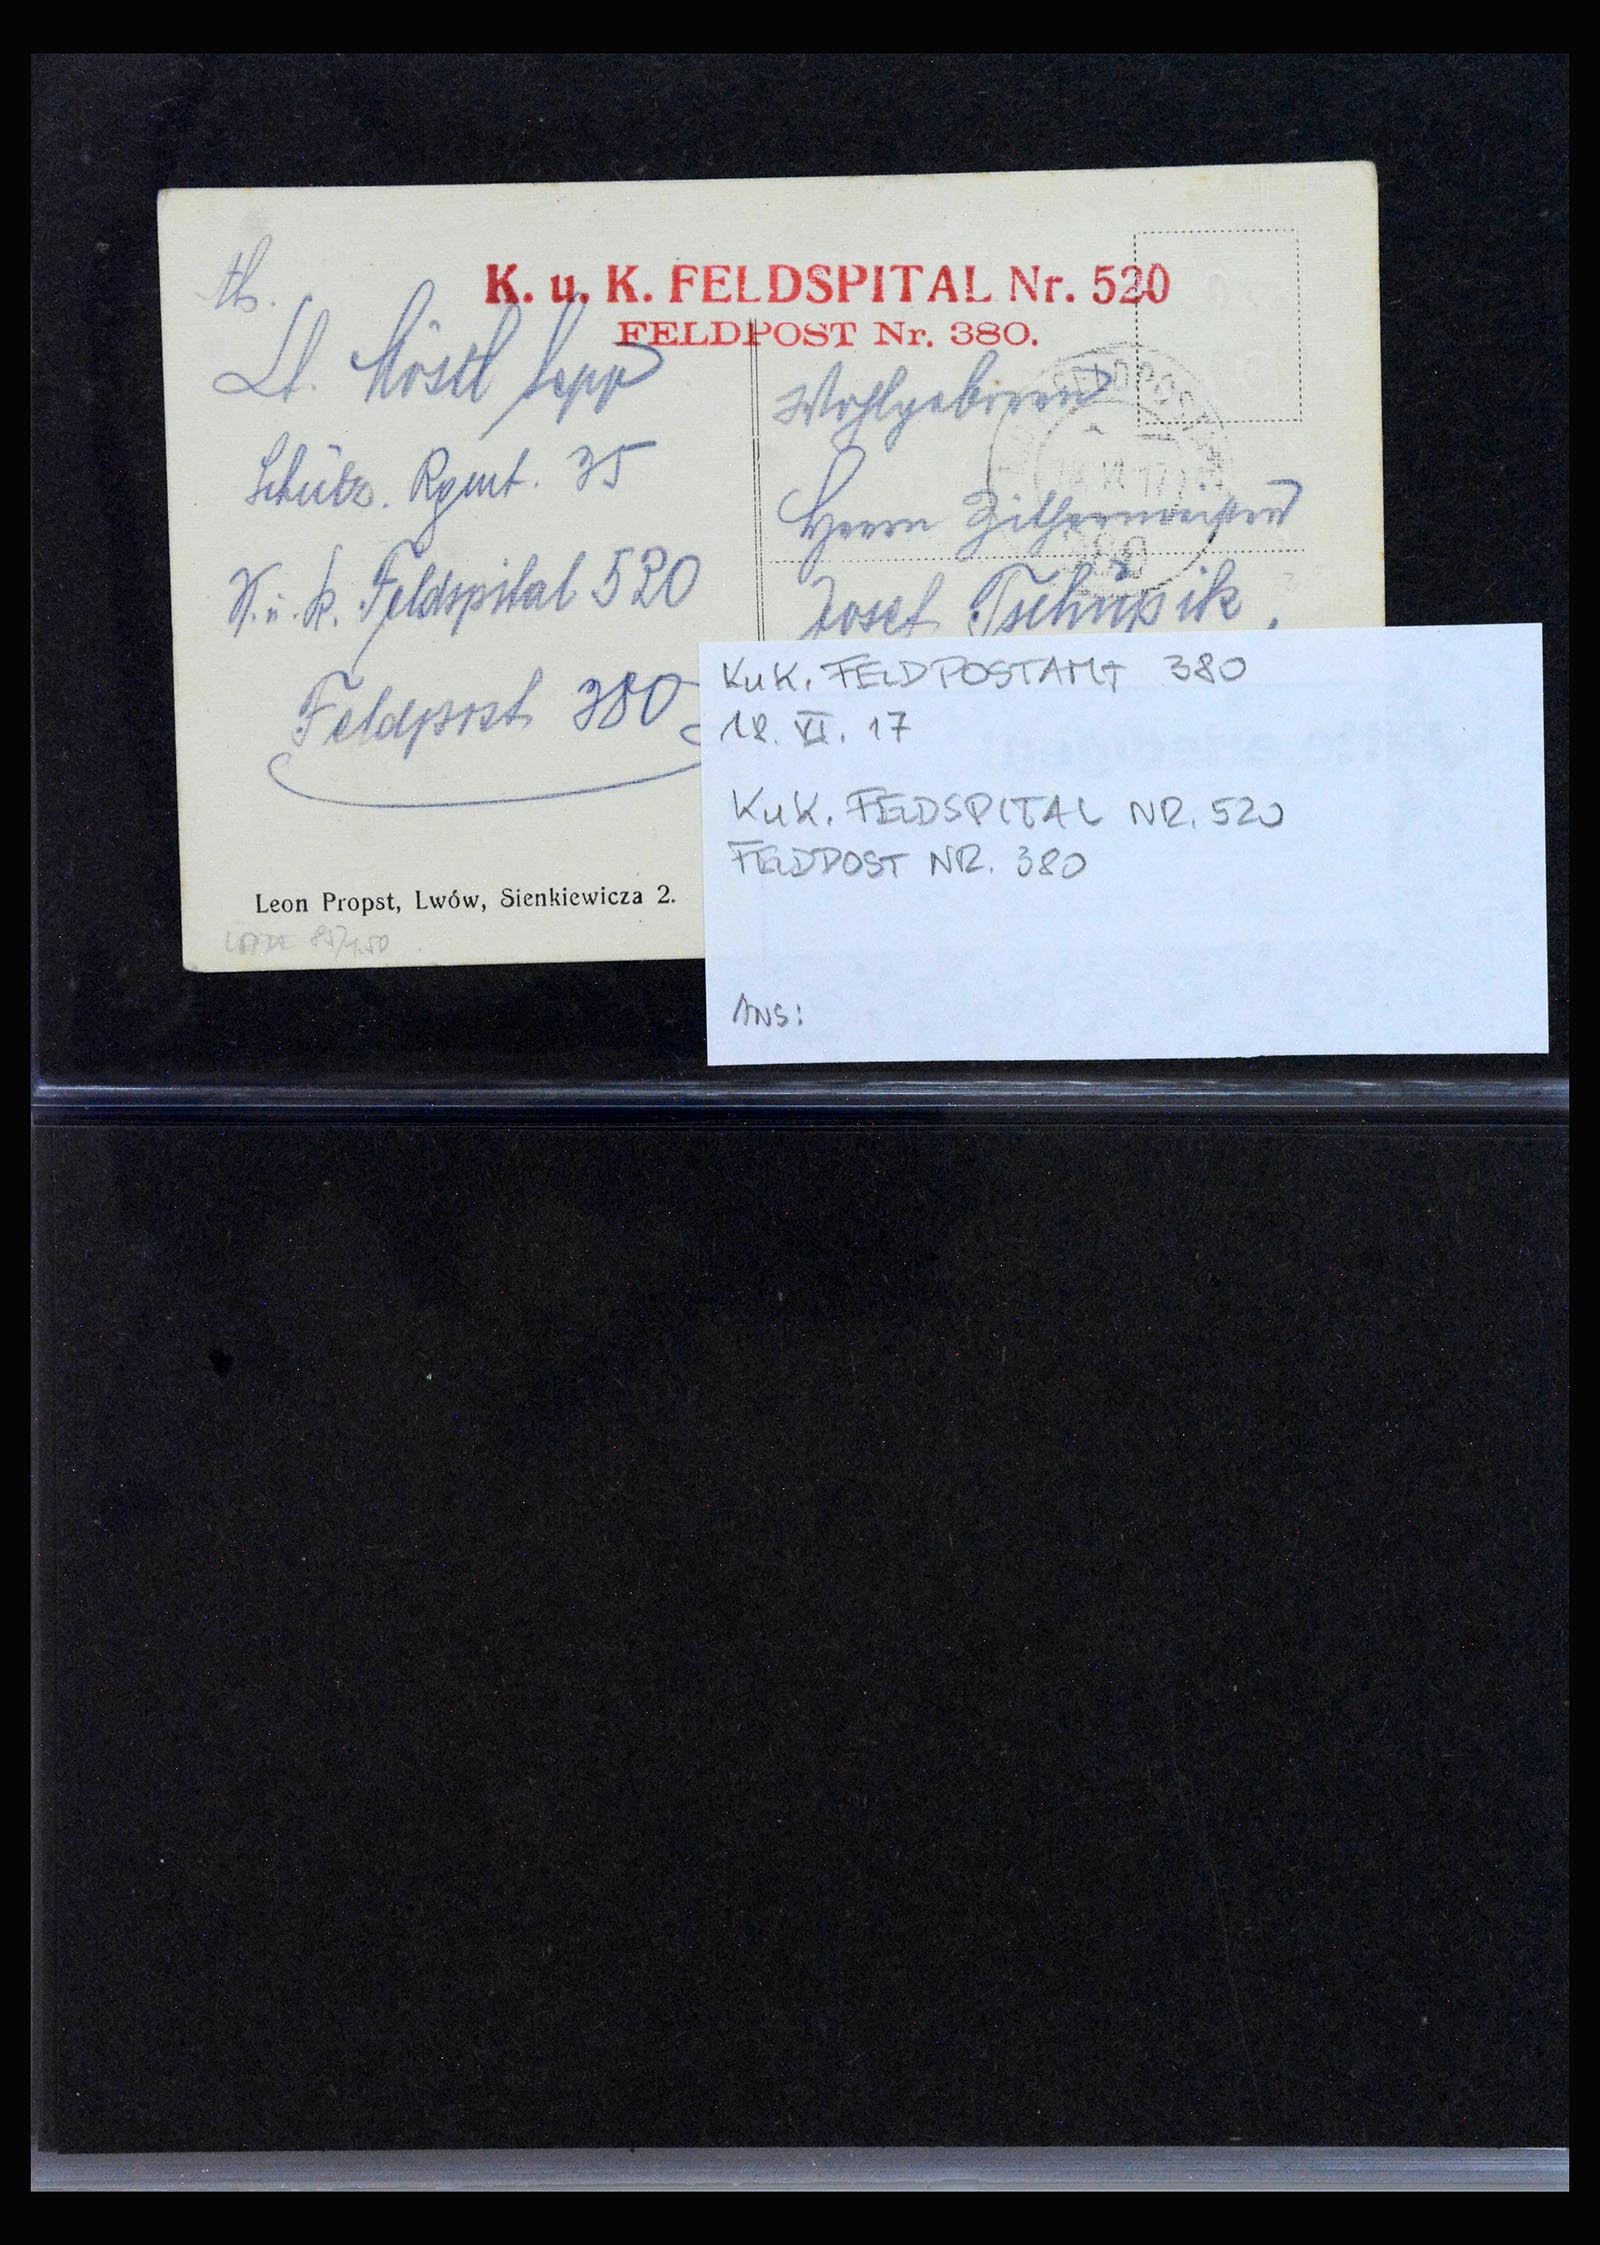 K. u. K. FELDSPITAL Nr. 520
FELDPOST Nr. 380.
Lt. Möstl Sepp
Schütz. Rgmt. 35
K. u. k. Feldspital 520
Feldpost 380
Leon Propst, Lwów, Sienkiewicza 2.
Wohlgeboren
Herrn Zithermeister
Josef Tschüpik
380
KuK. FELDPOSTAMT 380
18. VI. 17
KuK. FELDSPITAL NR. 520
FELDPOST NR. 380
ANS: